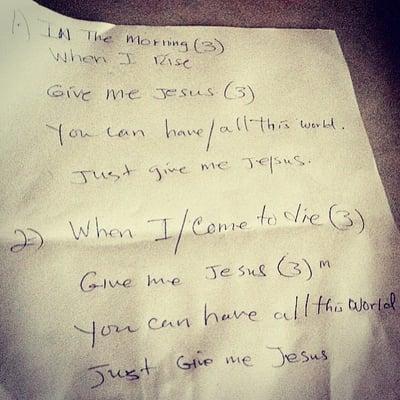 1.) IN The morning (3)
When I Rise
Give me Jesus (3)
You can have/all this world.
Just give me Je/sus.
2.) When I/Come to die (3)
Give me Jesus (3) m
You can have all this World
Just Give me Jesus